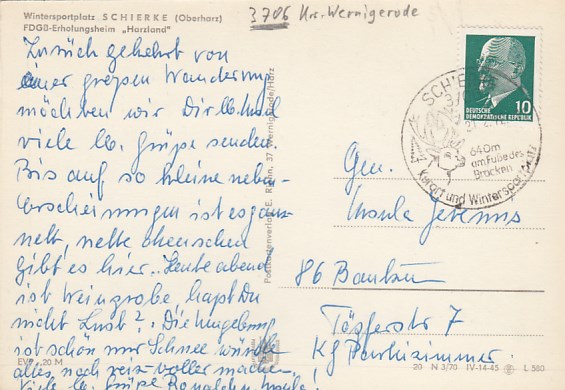 Wintersportplatz SCHIERKE (Oberharz)
FDGB-Erholungsheim „Harzland"
3706 Krs. Wernigerode
Zurück gekehrt von
einer großen Wanderung
möchten wir Dir lb. Ursel
viele lb. Grüße senden.
Bis auf so kleine neben-
erscheinungen ist es ganz
nett, nette Menschen
gibt es hier. Heute abend
ist Weinprobe, hast Du
nicht Lust? Die Umgebung
ist schön nur Schnee würde
alles noch reizvoller machen
Viele lb. Grüße
EVP -,20 M
Postkartenverlag E. Riehn, 37 Wernigerode/Harz
10
DEUTSCHE
DEMOKRATISCHE REPUBLIK
SCHIE
640m
am Fuße des
Brocken
Kurort und Wintersportplatz
Gen.
Ursula
86 Bautzen
Töpferstr 7
20 N 3/70 IV-14-45 L 503